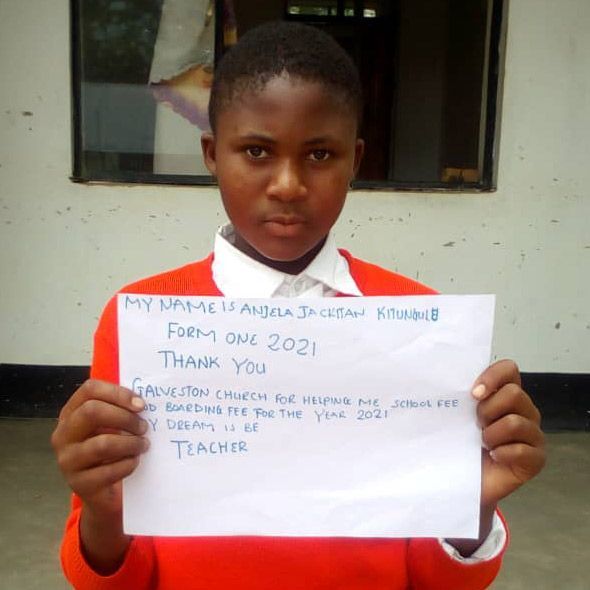 MY NAME IS ANJELA JACKITAN
FORM ONE 2021
THANK YOU
GALVESTON CHURCH FOR HELPING ME SCHOOL FEE
BOARDING FEE FOR THE YEAR 2021
DREAM IS BE
TEACHER